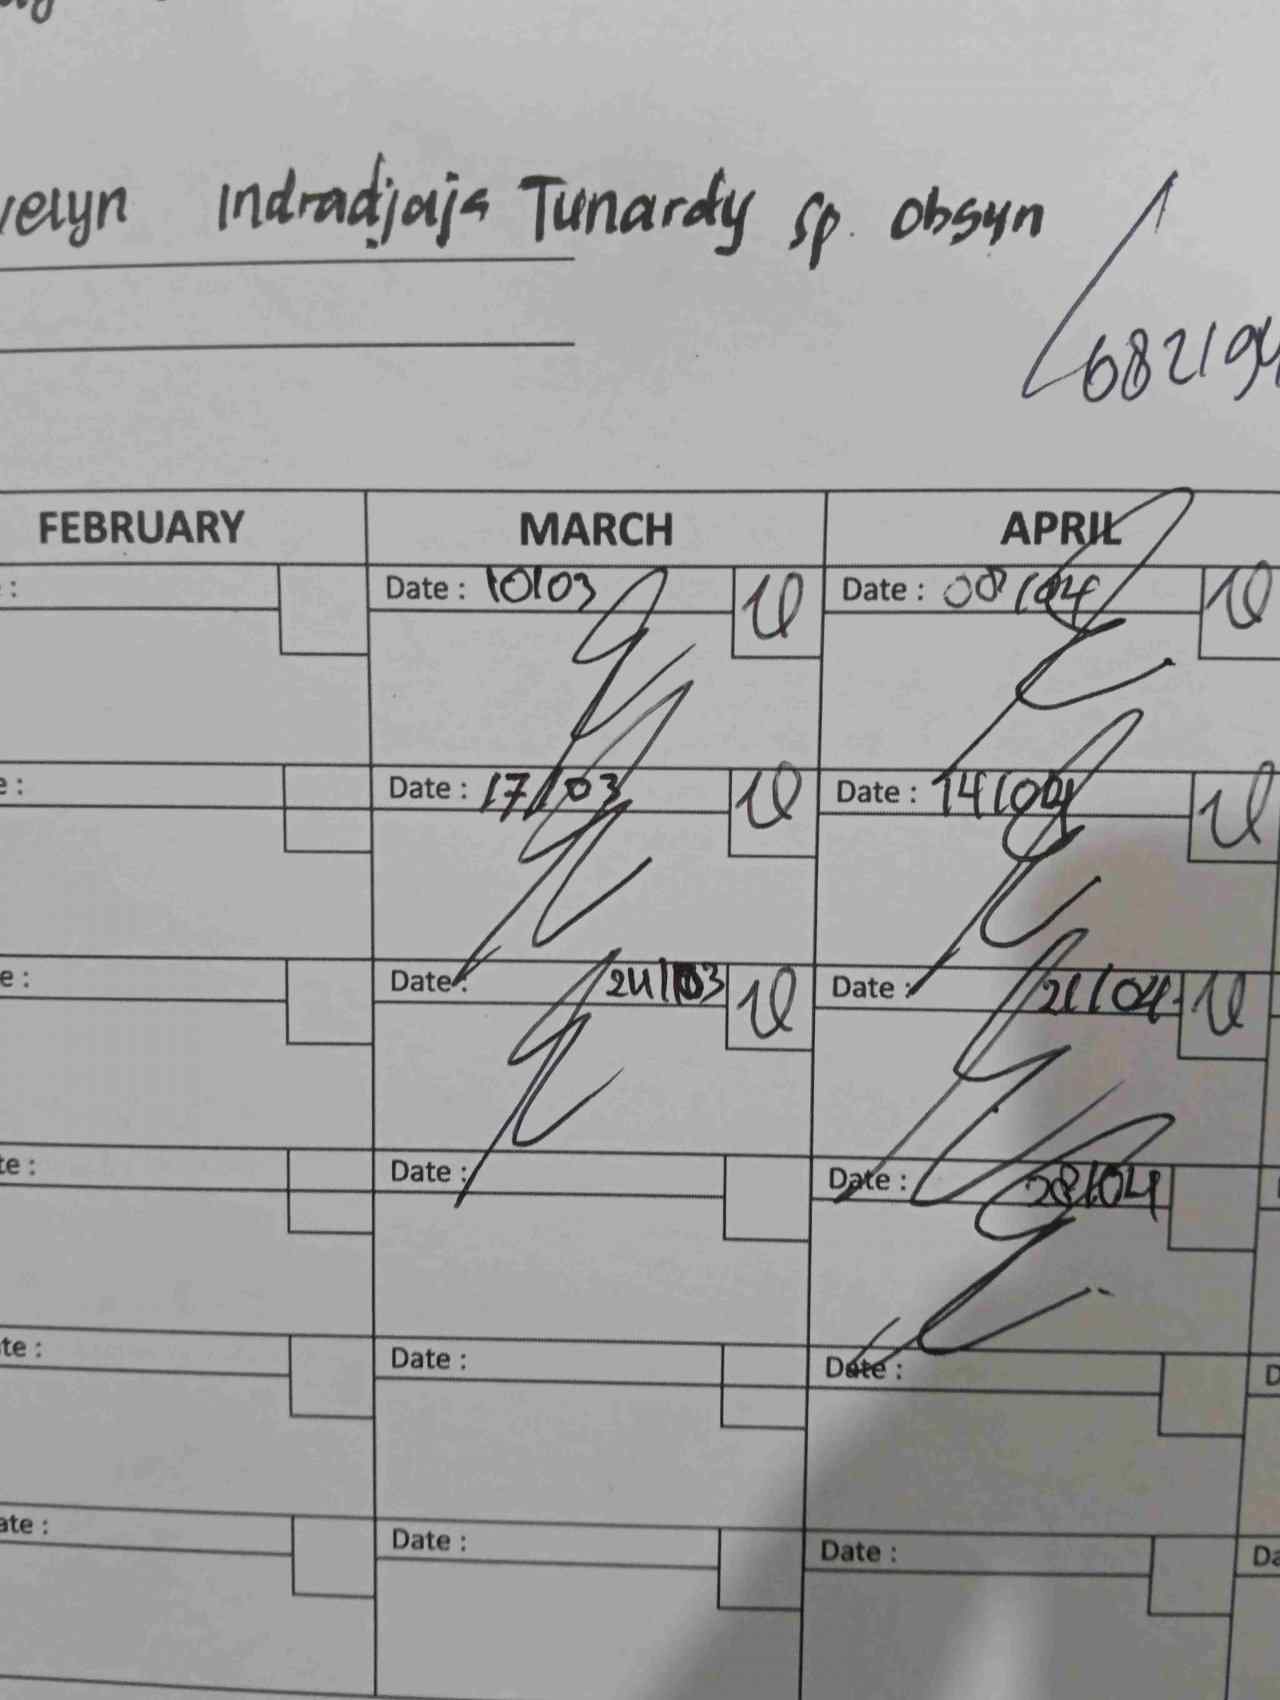 Indradjaja Tunardy sp. obsgyn
FEBRUARY MARCH APRIL
: Date : 10/03 Date : 08/04
e : Date : 17/03 Date : 14/04
e : Date : 24/03 Date : 21/04
te : Date : Date : 28/04
te : Date : Date : D
ate : Date : Date : Da